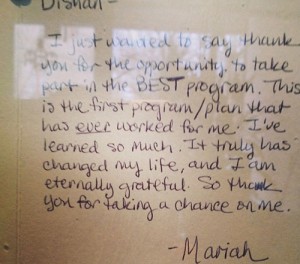 Dishan -
I just wanted to say thank
you for the opportunity to take
part in the BEST program. This
is the first program/plan that
has ever worked for me. I've
learned so much. It truly has
changed my life, and I am
eternally grateful. So thank
you for taking a chance on me.
- Mariah